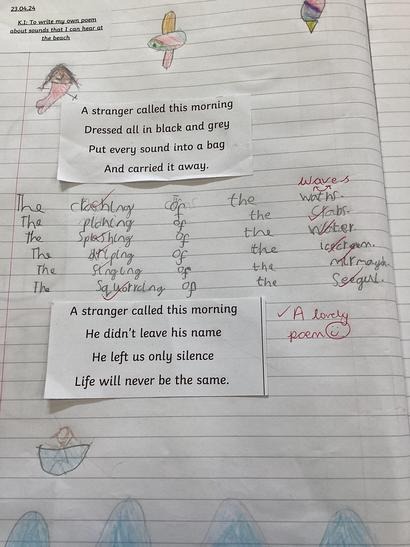 23.04.24
K.I: To write my own poem
about sounds that I can hear at
the beach
A stranger called this morning
Dressed all in black and grey
Put every sound into a bag
And carried it away.
waves
The crashing of the waths.
The planing of the crabs.
The Splashing of the Water
The driping of the icecream.
The Singing of the mirmayds.
The Squorcing of the Seegul.
A stranger called this morning
He didn't leave his name
He left us only silence
Life will never be the same.
✓ A lovely
poem